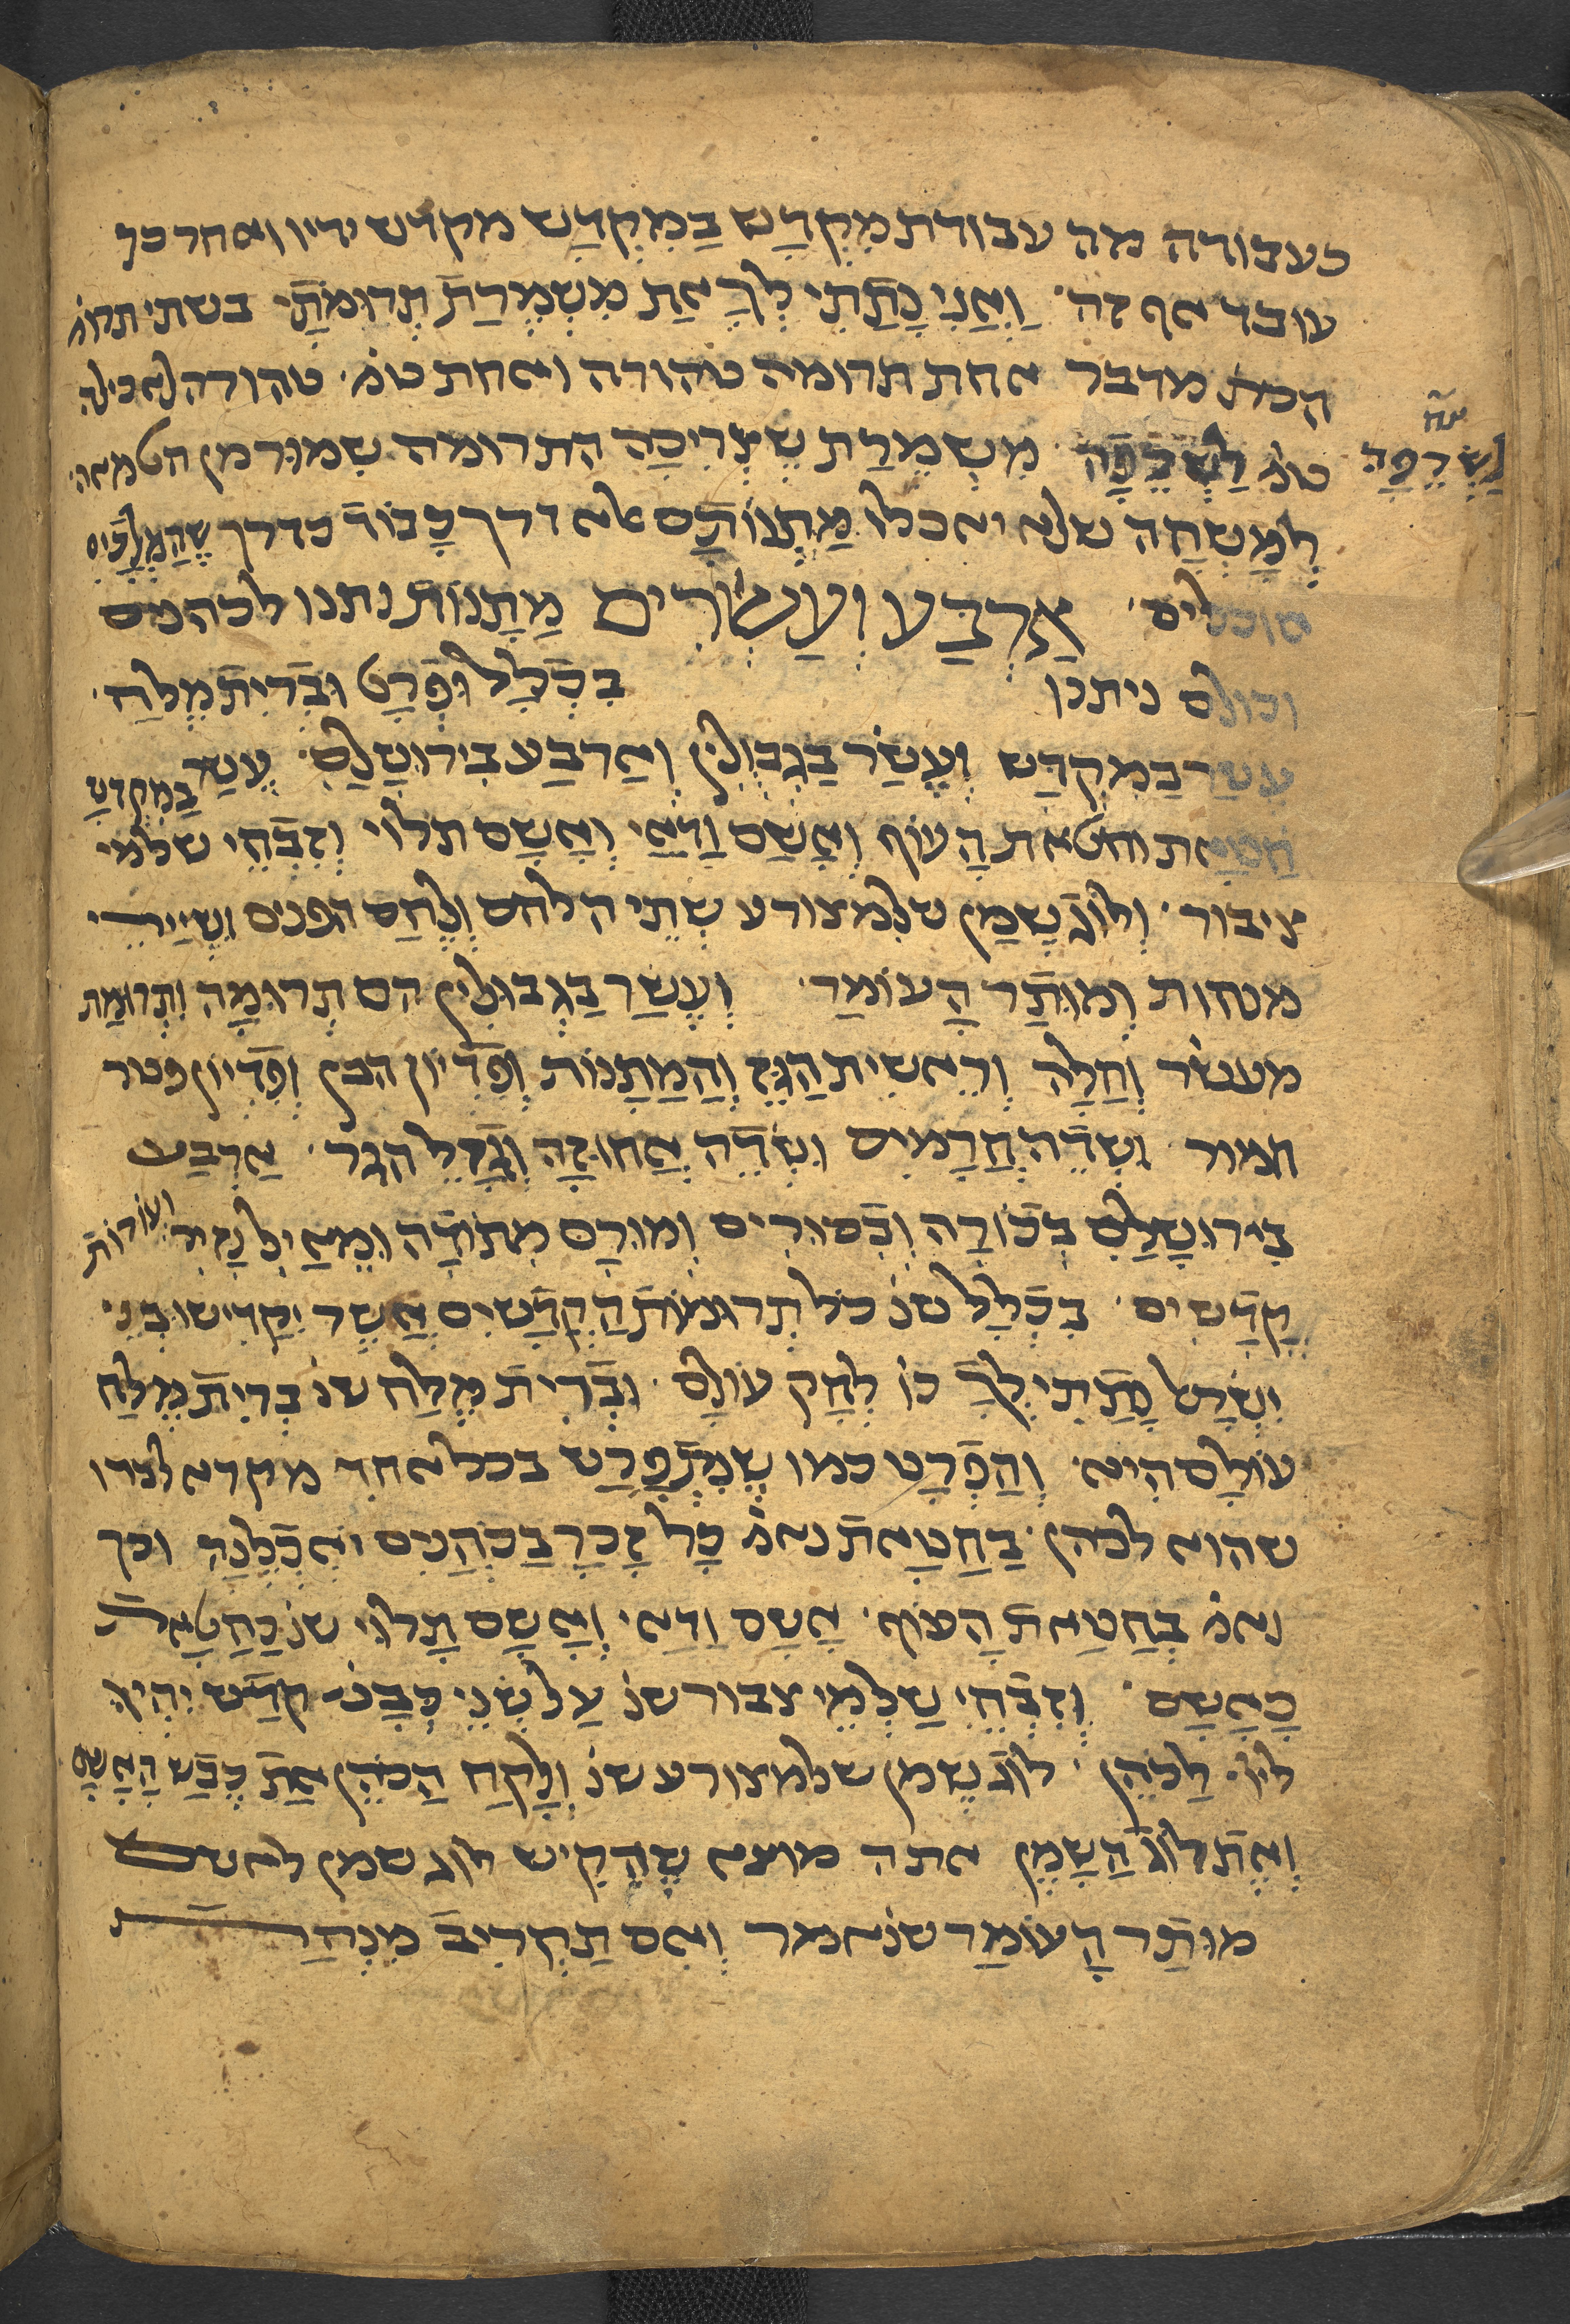 כעבודה מה עבודת מִקְדָש בַמִקְדַש מקדש ידיו ואחר כך
עובד אף זה׳ וַאֲנִי נָתַתִי לְךָ אֵת מִשְמֶרֶת תְרוּמֹתָי בשתי תרומ׳
הכת׳ מדבר אחת תרומה טהורה ואחת טמ׳ טהורה לאכילה
טמ׳ לַשְרֵפָה׳ מִשְמֶרֶת שֶצְרִיכָה התרומה שִמוּר מן הטמאה׳
לַשְרֵפָה
לְמָשְחָה שלא יאכלו מַתְנוֹתָם אלא דרך כָבוֹד כדרך שֶהַמְלָכִים
אוכלים׳ אַרְבַע וְעֶשְרִים מַתָנוֹת נתנו לכהנים
וכולם ניתנו בִכְלָל וּפְרָט וּבְרִית מֶלַח׳
עשר במִקְדָש וְעֶשֶׂר בַגְבוּלִין וְאַרְבַע בִירוּשָלַם׳ עֶשֶר בַמִקְדָש
חטאת וחטאת הָעוֹף וְאָשָם וַדַאי וְאָשָם תלוי וְזִבְחֵי שלמי
ציבור׳ וְלוֹג שֶמֶן שלמצורע שְתֵי הלחם וְלֶחֶם הפנים וְשְיָרֵי
מנחות וְמוֹתַר הָעוֹמֶר׳ וְעֶשֶר בַגְבוּלִין הם תְרוּמָה וּתְרוּמַת
מעשר וְחַלָה וְרֵאשִית הַגֵז וְהַמַתָנוֹת וְפִדְיוֹן הבן וְפִדְיוֹן פטר
חמור וְשְדֵה חֲרָמִים וְשְדֵה אֲחוּזָה וְגֶזֶל הגר׳ אַרְבַע
בִירוּשָלַם בְכוֹרָה וְבִכּוּרִים וְמוּרָם מִתוֹדָה וְמֵאֵיל נָזִיר וְעוֹרוֹת
קָדָשִים׳ בִכְלָל שנ׳ כל תְרוּמוֹת הַקֳדָשִים אֲשֶר יַקְדִישוּ בְנֵי
יִשְרָאֵל נָתַתִי לְךָ כו׳ לְחָק עולם׳ וּבְרִית מֶלַח שנ׳ בְרִית מֶלַח
עוֹלָם הִיא׳ וְהַפְרָט כמו שֶמְפָרֵט בכל אחד מקרא לבדו
שהוא לכהן׳ בַחַטָאת נאמ׳ כָל זָכָר בַכֹהֲנִים יֹאכֲלֶנָה וכך
נאמ׳ בְחַטַאת הָעוֹף׳ אָשָם וַדַאי׳ וְאָשָם תָלוּי שנ׳ כַחַטָאת
כָאָשָם׳ וְזִבְחֵי שַלְמֵי צבור שנ׳ עַל שְנֵי כְבָש׳ קֹדֶש יִהְיוּ
לייי׳ לַכֹהֵן׳ לוג שֶמֶן שלמצורע שנ׳ וְלָקַח הַכֹהֵן אֶת כֶבֶש הָאָשָם
וְאֶת לוֹג הַשֶמֶן אתה מוצא שֶהֻקִיש לוג שמן לאשם
מוֹתַר הָעוֹמֶר שנאמר וְאִם תַקְרִיב מִנְחַת